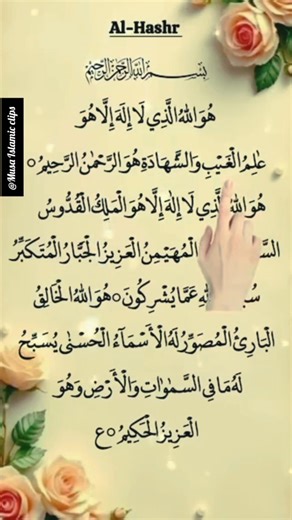 Al-Hashr
بِسْمِ اللهِ الرَّحْمٰنِ الرَّحِيْمِ
هُوَ اللهُ الَّذِي لَا إِلَهَ إِلَّا هُوَ
عٰلِمُ الْغَيْبِ وَالشَّهَادَةِ هُوَ الرَّحْمٰنُ الرَّحِيْمُ ○
هُوَ اللهُ لَا إِلٰهَ إِلَّا هُوَ الْمَلِكُ الْقُدُّوسُ
الْمُهَيْمِنُ الْعَزِيْزُ الْجَبَّارُ الْمُتَكَبِّرُ
عَمَّا يُشْرِكُونَ ○ هُوَ اللهُ الْخَالِقُ
الْبَارِئُ الْمُصَوِّرُ لَهُ الْأَسْمَآءُ الْحُسْنٰى يُسَبِّحُ
لَهُ مَا فِي السَّمٰوٰاتِ وَالْأَرْضِ وَهُوَ
الْعَزِيْزُ الْحَكِيْمُ ○ ع
@Musa Islamic clips